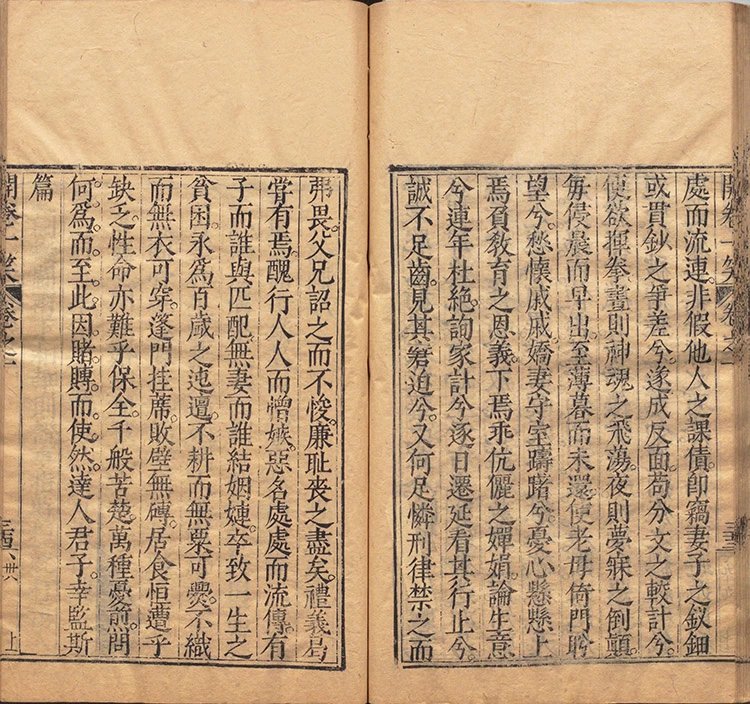 開卷一笑 卷之二
處而流連。非假他人之課債。卽竊妻子之釵鈿
或貫鈔之爭差兮。遂成反面。苟分文之較計兮。
便欲揮拳。晝則神魂之飛蕩。夜則夢寐之倒顛。
每侵晨而早出。至薄暮而未還。使老母倚門盻
望兮。愁懷戚戚。嬌妻守室躊躇兮。憂心懸懸。上
焉負敎育之恩義。下焉乖伉儷之嬋娟。論生意
兮連年杜絶。詢家計兮逐日遷延。看其行止兮。
誠不足齒。見其窘迫兮。又何足憐。刑律禁之而
弗畏。父兄詔之而不悛。廉耻喪之盡矣。禮義曷
嘗有焉。醜行人人而憎嫉。惡名處處而流傳。有
子而誰與匹配。無妻而誰結姻婕。卒致一生之
貧困。永爲百歲之迍邅。不耕而無粟可爨。不織
而無衣可穿。蓬門挂蓆。敗壁無磚。居食恒遭乎
缺乏。性命亦難乎保全。千般苦楚。萬種憂煎。問
何爲而至此。因賭賻而使然。達人君子。幸監斯
篇
開卷一笑 卷之二
上